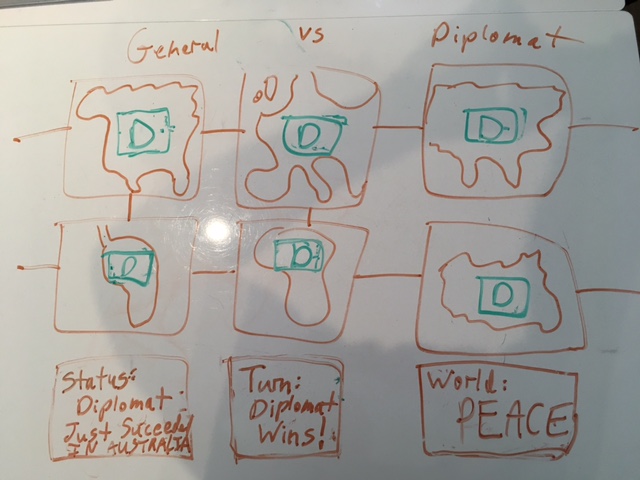 General vs Diplomat
D D D
D D D
Status:
Diplomat
Just Succeeded
IN AUSTRALIA
Turn:
Diplomat
Wins!
World:
PEACE